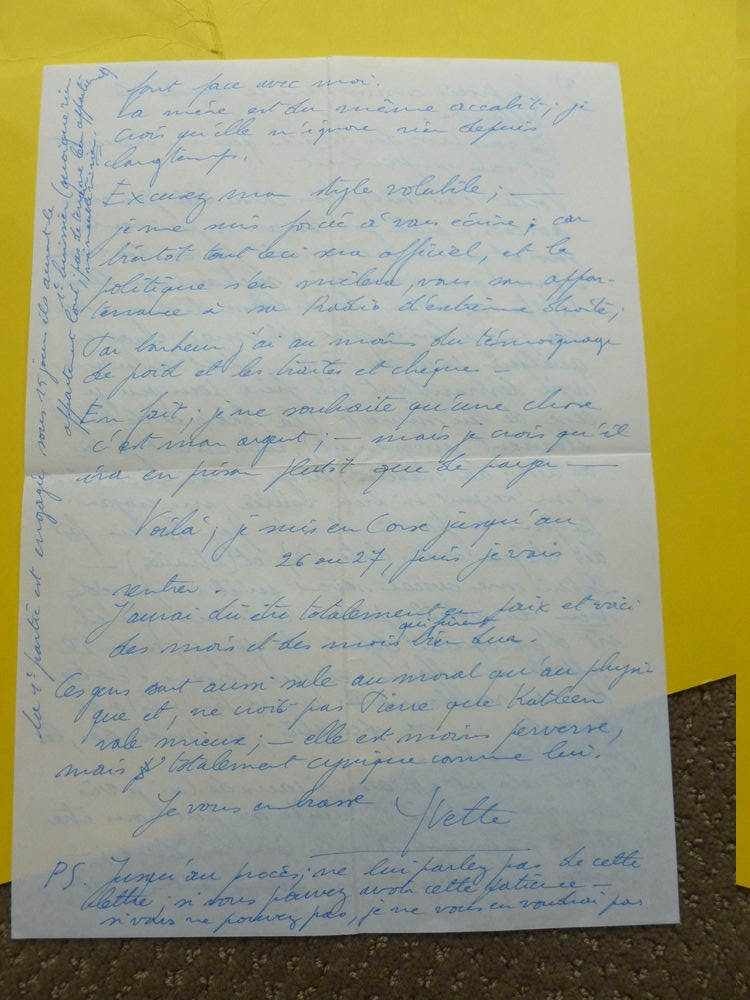 font face avec moi.
La mère est du même accabit ; je
crois qu'elle n'ignore rien depuis
longtemps.
Excusez mon style volubile ; —
je me suis forcée à vous écrire ; car
bientot tout ceci sera officiel, et la
politique s'en mêlera, vous son appar-
tenance à sa Radio d'extrême droite ;
Par bonheur j'ai au moins du témoignage
de poid et les traites et chèques –
En fait ; je ne souhaite qu'une chose
c'est mon argent ; – mais je crois qu'il
ira en prison plutot que de payer —
Voilà ; je suis en Corse jusqu'au
26 ou 27, puis je vais
rentrer.
J'aurai du être totalement en paix et voici
des mois et des mois qui furent bien dur.
Ces gens sont aussi sale au moral qu'au physi-
que et, ne croit pas Pierre que Kathleen
vale mieux ; – elle est moins perverse,
mais totalement cynique comme lui.
Je vous embrasse Yvette
PS. Jusqu'au procès, ne lui parlez pas de cette
lettre ; si vous pouvez avoir cette patience –
si vous ne pouvez pas, je ne vous en voudrai pas
La 1e partie est engagée sous 15 jours ils auront le
1e huissier (quoique rien
appartement loué, pas de